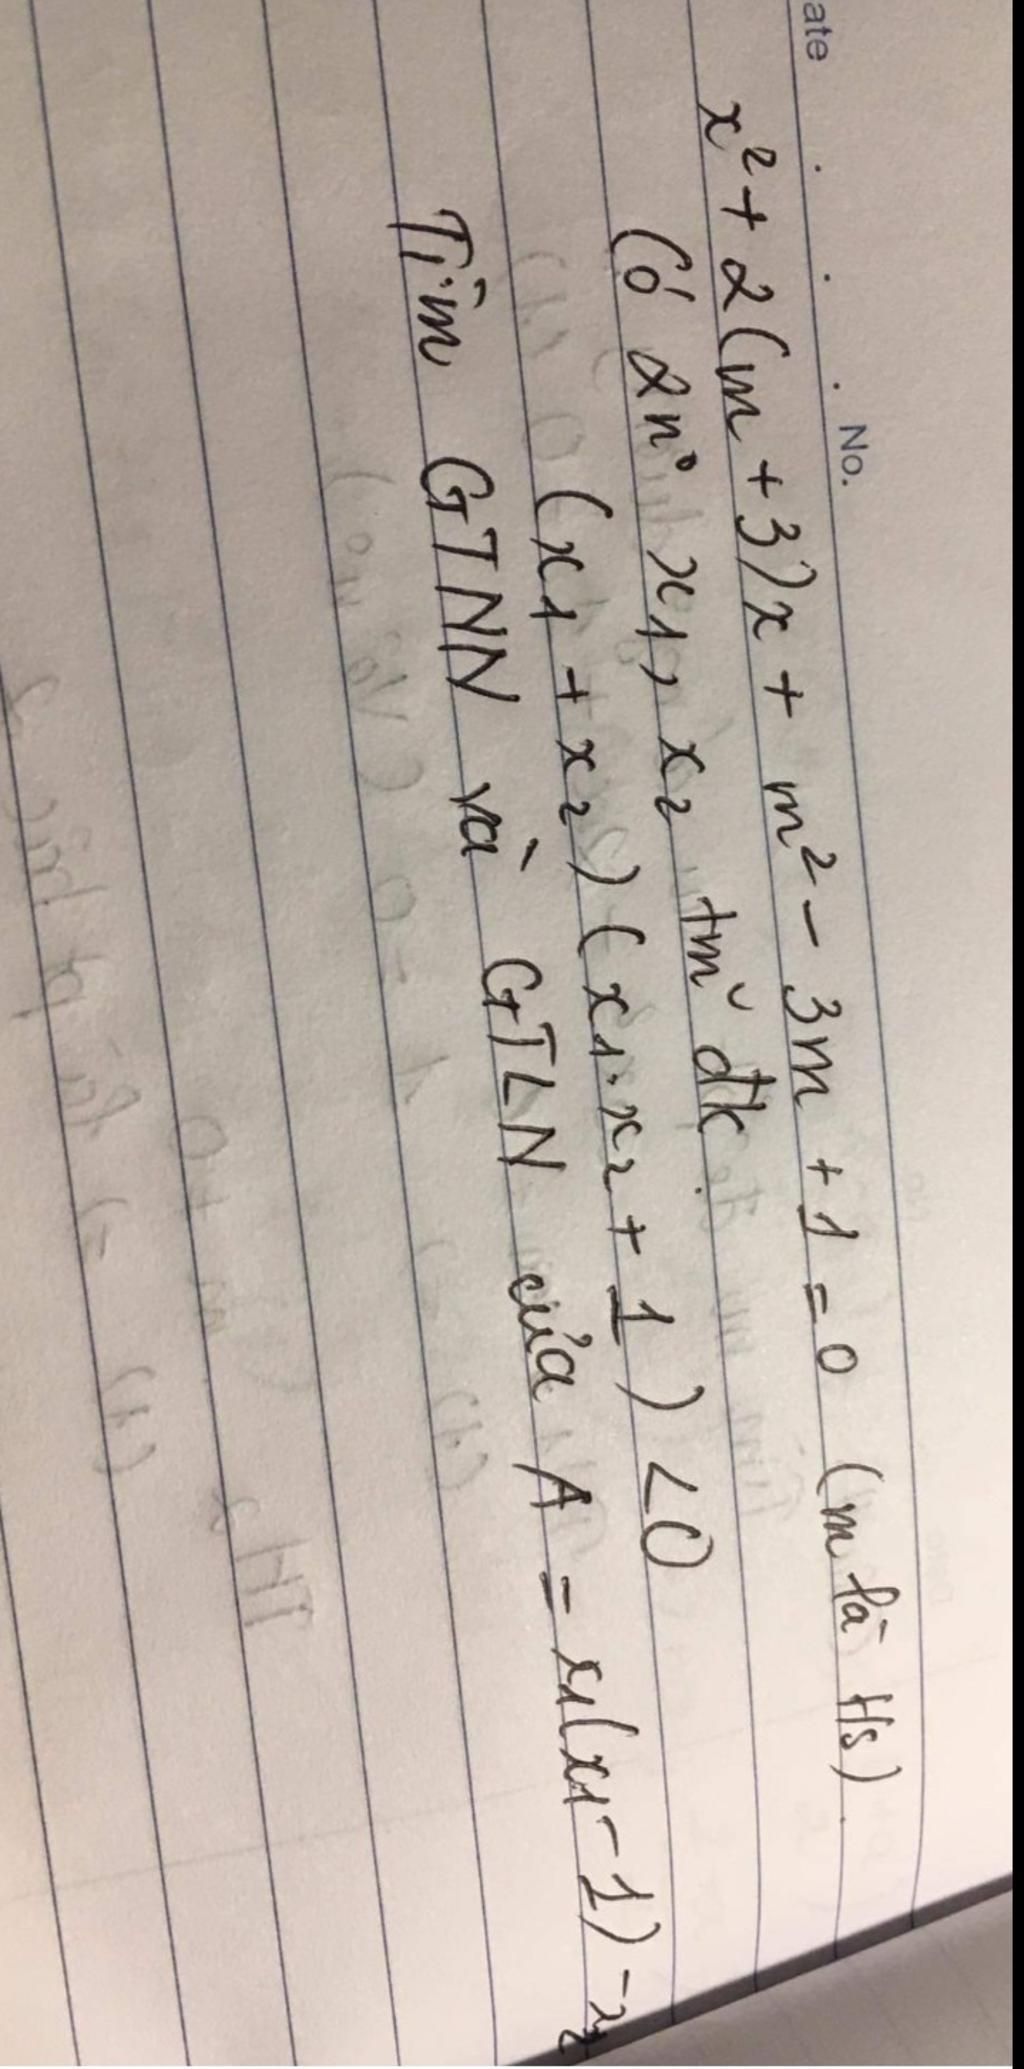 ate
No.
x² + 2(m + 3)x + m² - 3m + 1 = 0 (m là
Có 2n⁰ x₁, x₂ tm đk
(x₁ + x₂)(x₁.x₂ + 1) < 0
Tìm GTNN và GTLN của A = x₁(x₁ - 1) - x₂